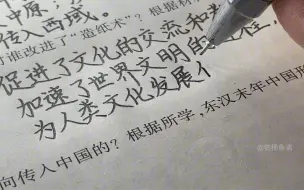 中原，
传入西域。
谁改进了“造纸术”？根据材
促进了文化的交流和
加速了世界文明的进程，
为人类文化发展
向传入中国的？根据所学，东汉末年中国